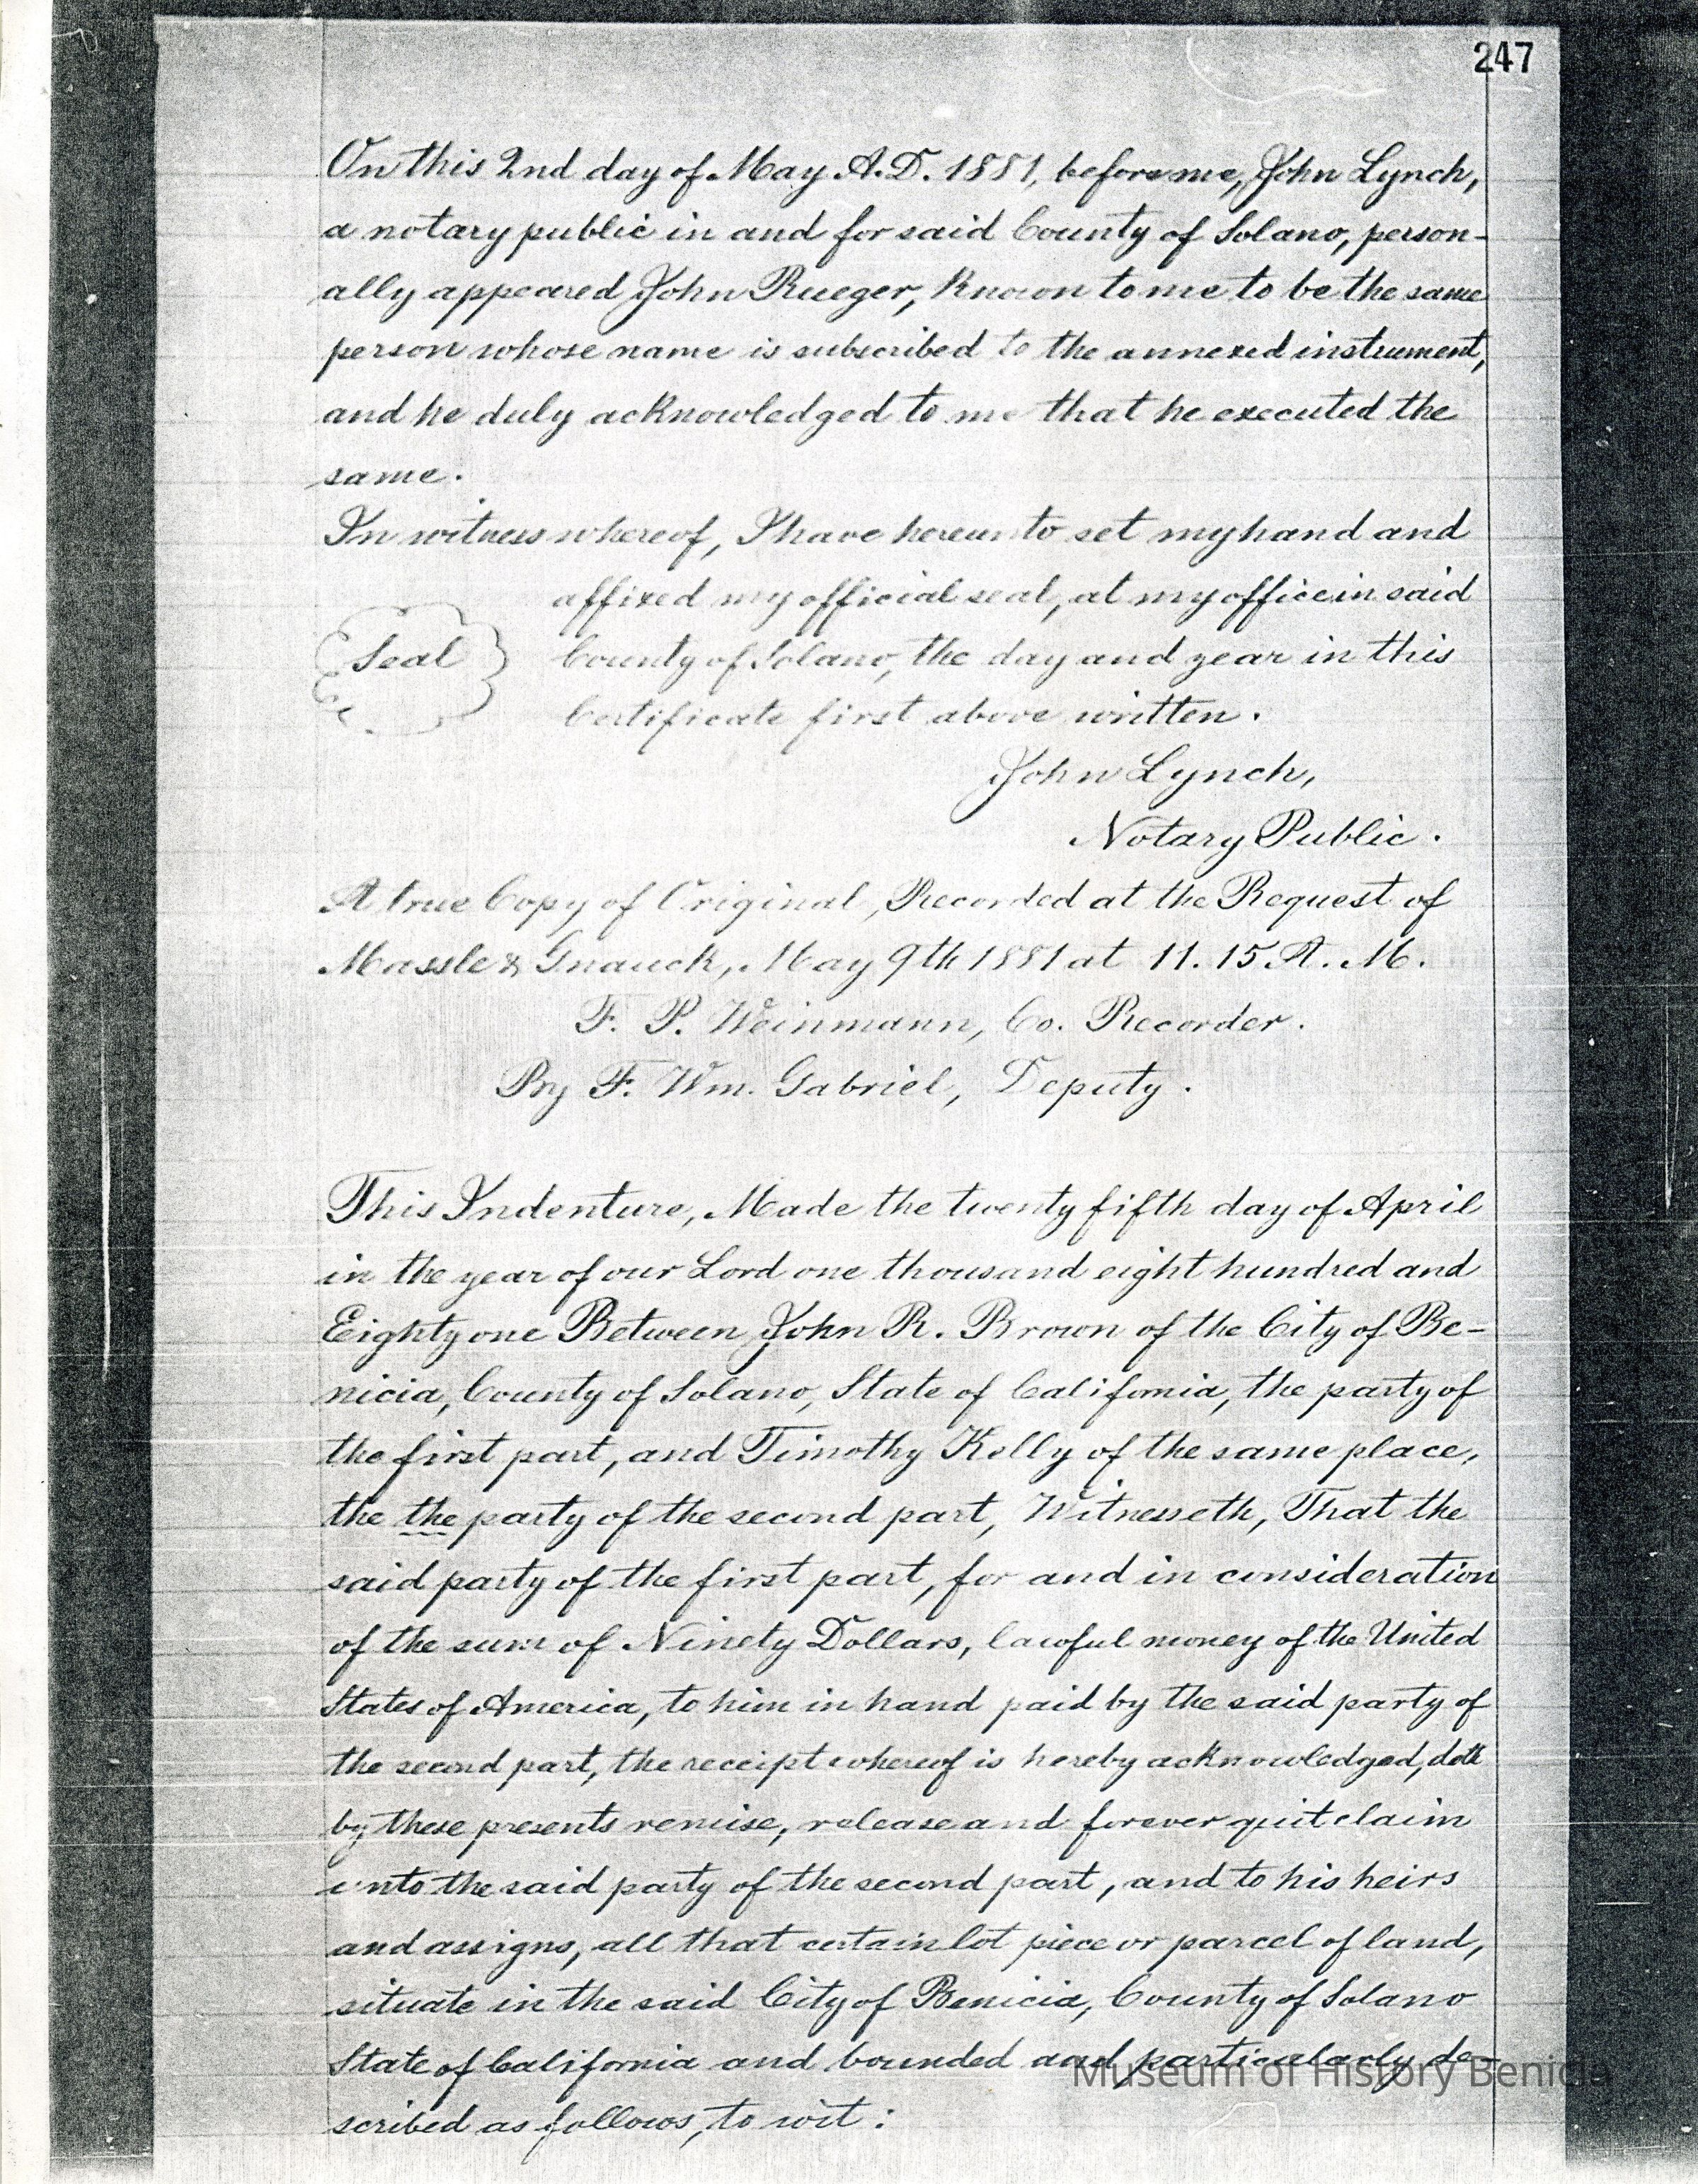 247
On this 2nd day of May A.D. 1881, before me, John Lynch,
a notary public in and for said County of Solano, person-
ally appeared John Rueger, known to me to be the same
person whose name is subscribed to the annexed instrument,
and he duly acknowledged to me that he executed the
same.
In witness whereof, I have hereunto set my hand and
affixed my official seal, at my office in said
Seal County of Solano, the day and year in this
Certificate first above written.
John Lynch,
Notary Public.
A true Copy of Original, Recorded at the Request of
Massle & Gnauck, May 9th 1881 at 11.15 A.M.
F. P. Weinmann, Co. Recorder.
By F. Wm. Gabriel, Deputy.
This Indenture, Made the twenty fifth day of April
in the year of our Lord one thousand eight hundred and
Eighty one Between John R. Brown of the City of Be-
nicia, County of Solano, State of California, the party of
the first part, and Timothy Kelly of the same place,
the the party of the second part, Witnesseth, That the
said party of the first part, for and in consideration
of the sum of Ninety Dollars, lawful money of the United
States of America, to him in hand paid by the said party of
the second part, the receipt whereof is hereby acknowledged, doth
by these presents remise, release and forever quitclaim
unto the said party of the second part, and to his heirs
and assigns, all that certain lot piece or parcel of land,
situate in the said City of Benicia, County of Solano
State of California and bounded and particularly de-
scribed as follows, to wit:
Museum of History Benicia